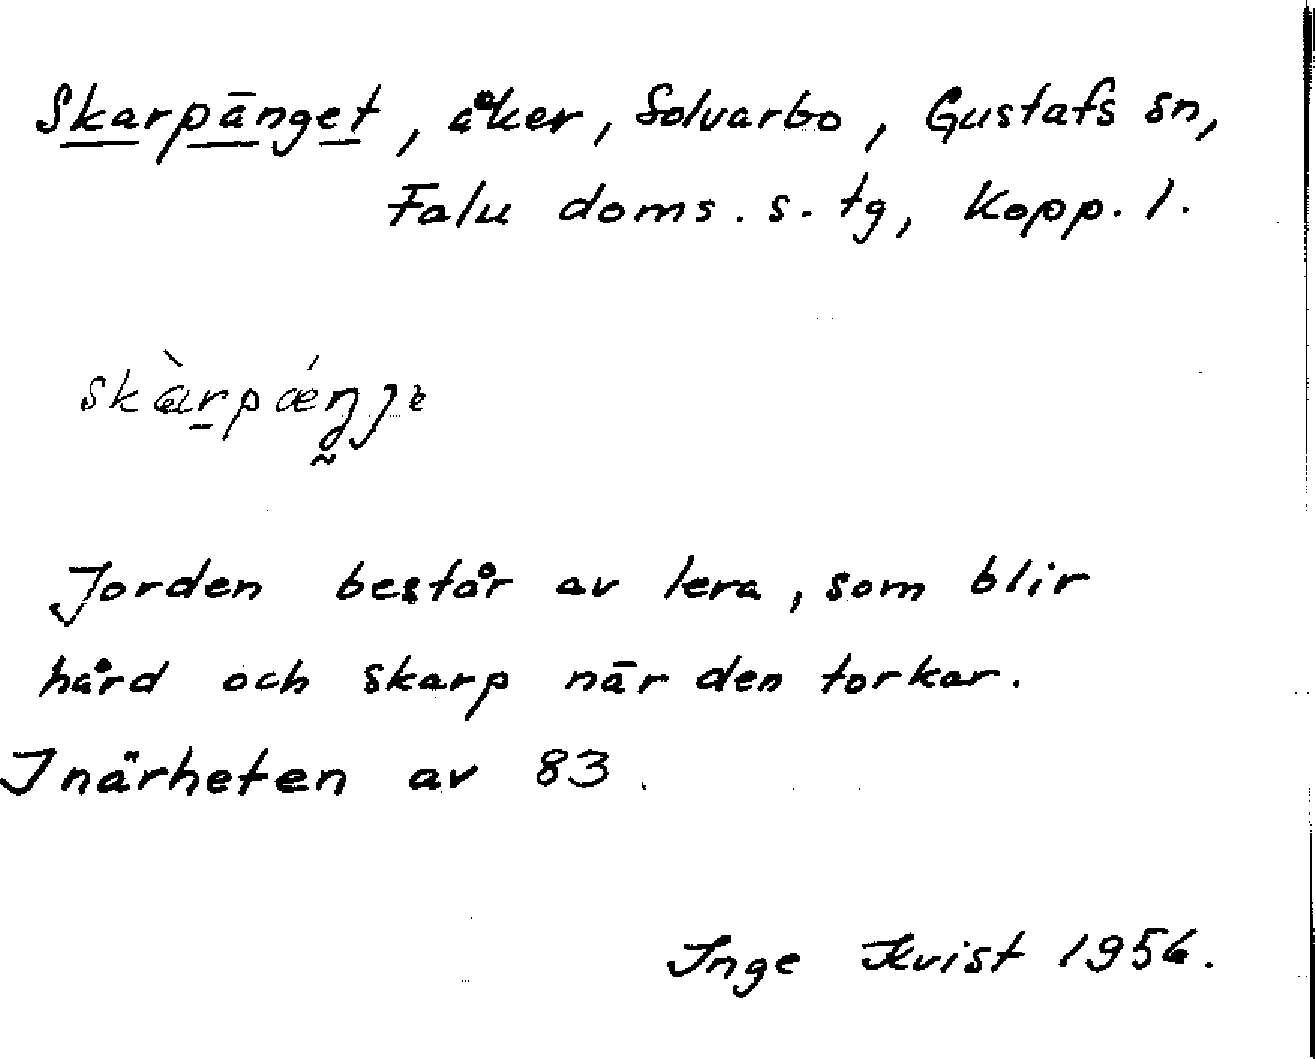 Skarpänget, åker, Solvarbo, Gustafs sn,
Falu doms. s. tg, Kopp. l.
Jorden består av lera, som blir
hård och skarp när den torkar.
I närheten av 83.
Inge Kvist 1956.